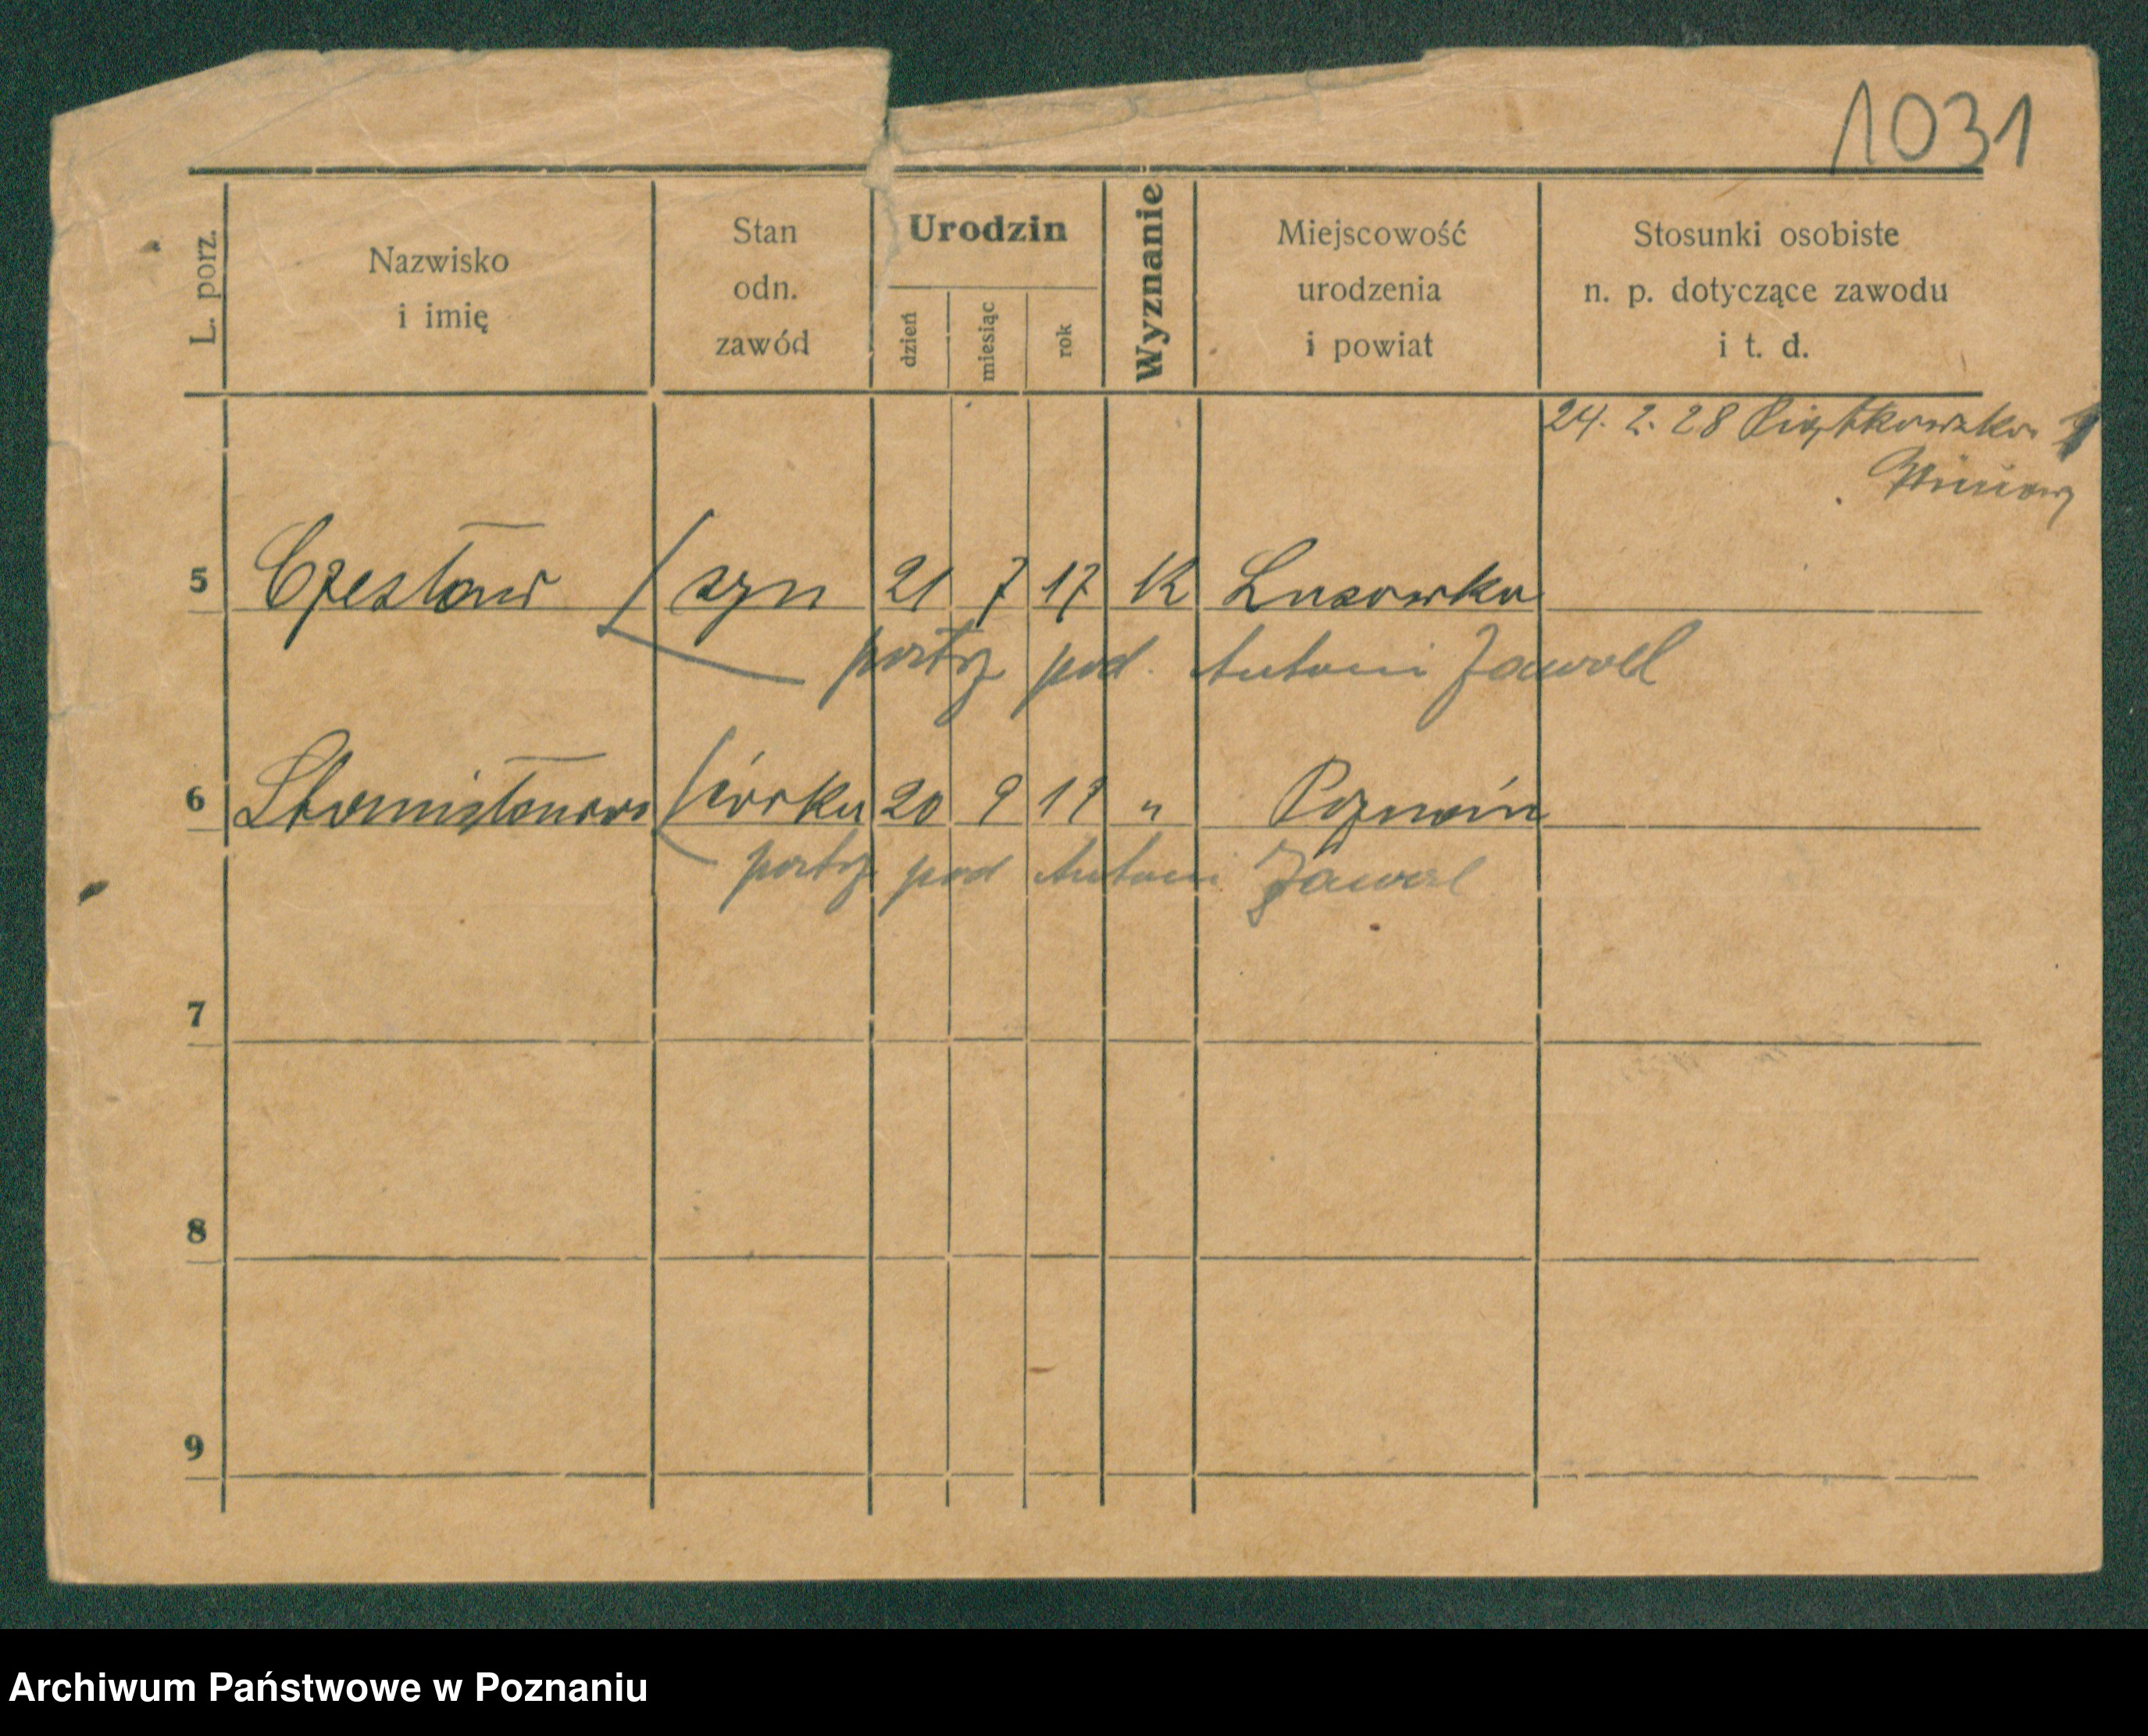 1031
L. porz.
Nazwisko
i imię
Stan
odn.
zawód
Urodzin
dzień
miesiąc
rok
Wyznanie
Miejscowość
urodzenia
i powiat
Stosunki osobiste
n. p. dotyczące zawodu
i t. d.
24. 2. 28 Piątkowska
Winiary
5 Czesław syn 21 7 17 K
patrz pod. Antoni
6 Stanisława córka 20 9 19 " Poznań
patrz pod Antoni
7
8
9
Archiwum Państwowe w Poznaniu